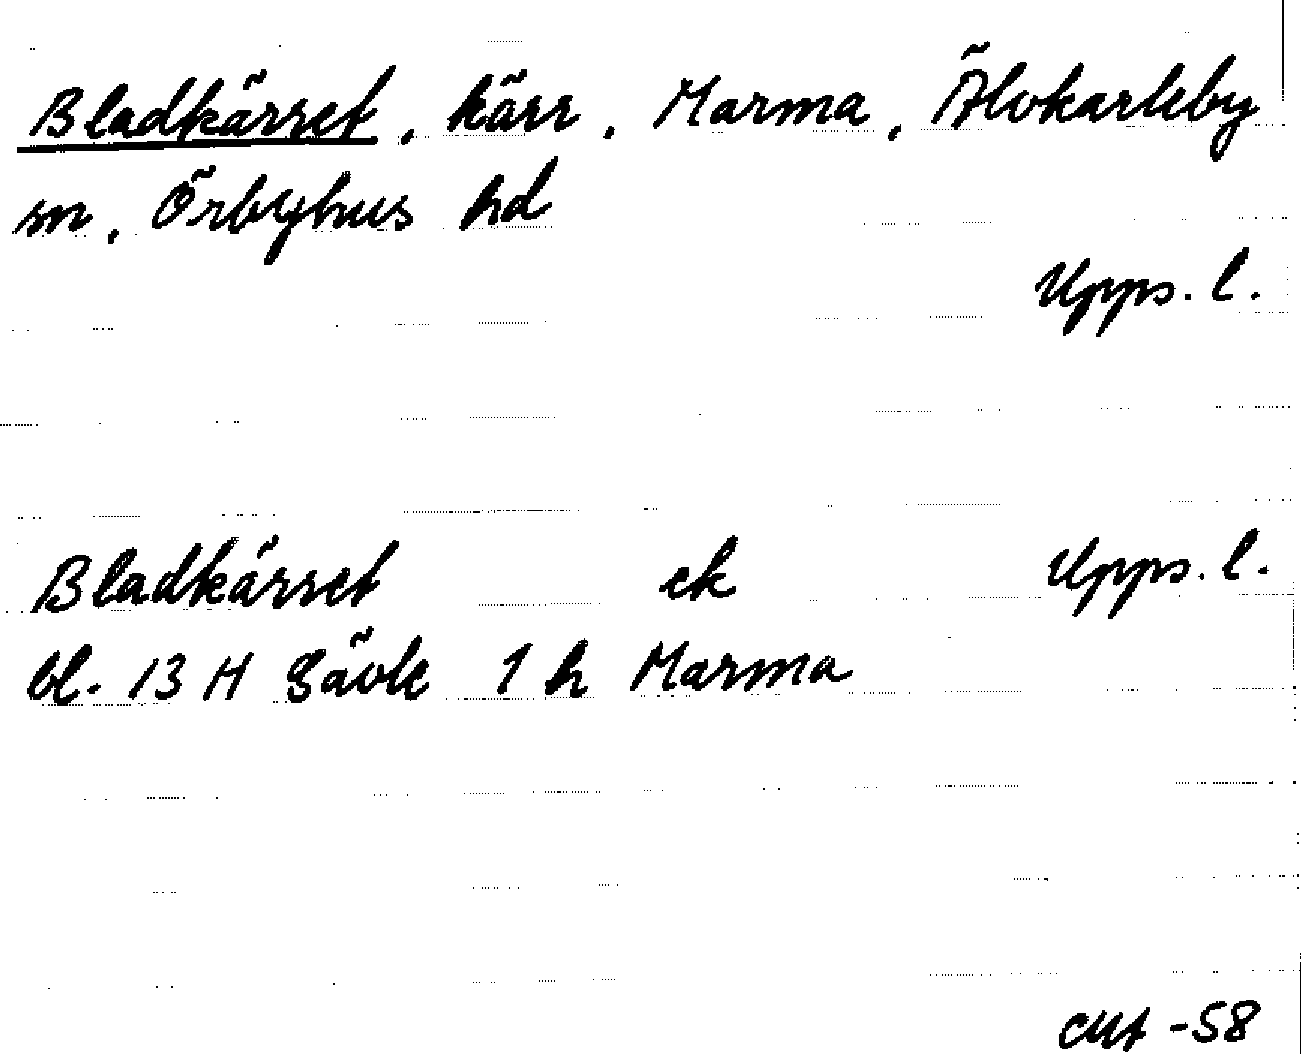 Bladkärret, kärr, Marma, Älvkarleby
sn, Örbyhus hd
Upps. l.
Bladkärret ek Upps. l.
bl. 13 H Gävle 1 h Marma
-58